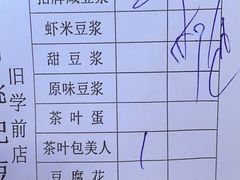 招牌咸豆浆
虾米豆浆
甜豆浆
原味豆浆
茶叶蛋
茶叶包美人
豆腐花
旧学前店